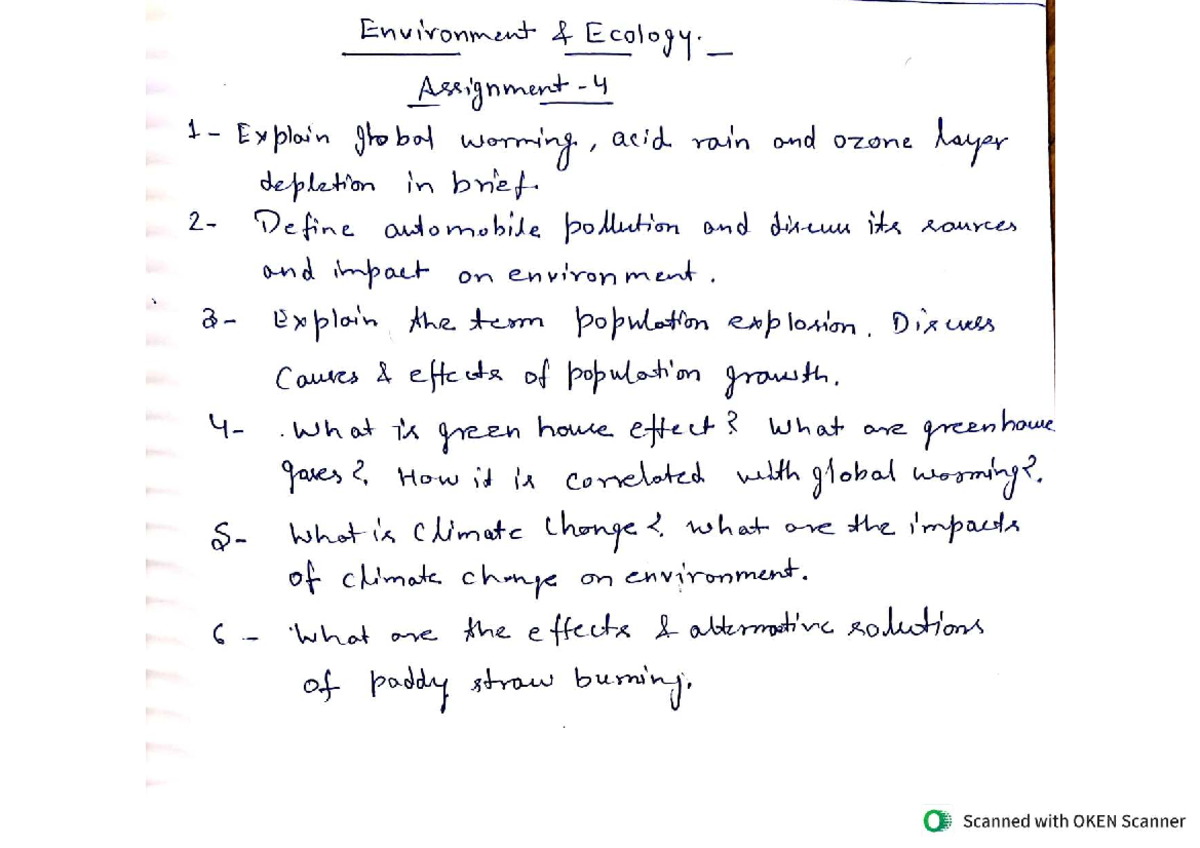 Environment & Ecology.
Assignment - 4
1 - Explain global worming, acid rain and ozone layer
depletion in brief.
2 - Define automobile pollution and discuss its sources
and impact on environment.
3 - Explain the term population explosion. Discuss
Causes & effects of population growth.
4 - What is green house effect? What are greenhouse
gases?. How it is correlated with global worming?.
5 - What is Climate Change?. What are the impacts
of climate change on environment.
6 - What are the effects & alternative solutions
of paddy straw burning.
Scanned with OKEN Scanner